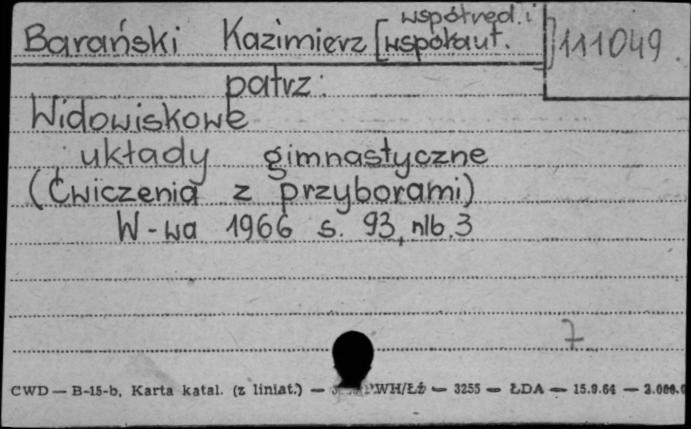 współred. i
Barański Kazimierz [współaut.] 111049
patrz:
Widowiskowe
układy gimnastyczne
(Ćwiczenia z przyborami)
W-wa 1966 s. 93, nlb. 3
7
CWD — B-15-b, Karta katal. (z liniat.) — WH/Łź — 3255 — ŁDA — 15.9.64 —